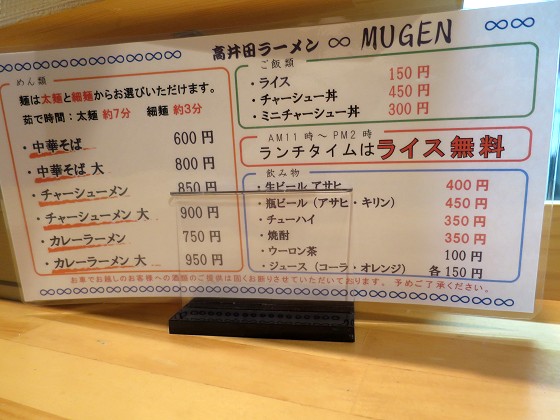 高井田ラーメン ∞ MUGEN
めん類
麺は太麺と細麺からお選びいただけます。
茹で時間:太麺 約7分 細麺 約3分
・中華そば 600円
・中華そば 大 800円
・チャーシューメン 850円
・チャーシューメン 大 900円
・カレーラーメン 750円
・カレーラーメン 大 950円
ご飯類
・ライス 150円
・チャーシュー丼 450円
・ミニチャーシュー丼 300円
AM11時～PM2時
ランチタイムはライス無料
飲み物
・生ビール アサヒ 400円
・瓶ビール(アサヒ・キリン) 450円
・チューハイ 350円
・焼酎 350円
・ウーロン茶 100円
・ジュース(コーラ・オレンジ) 各150円
お車でお越しのお客様への酒類のご提供は固くお断りさせていただいております。予めご了承ください。